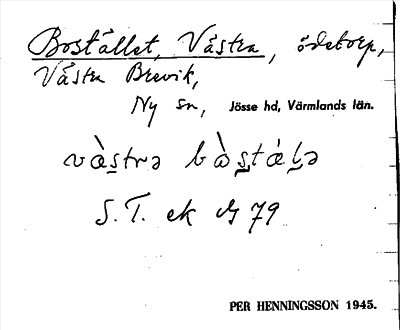 Bostället, Västra, ödetorp,
Västra Brevik,
Ny sn, Jösse hd, Värmlands län.
vàs̲trə bòs̲tálə
S.T. ek 79
PER HENNINGSSON 1945.